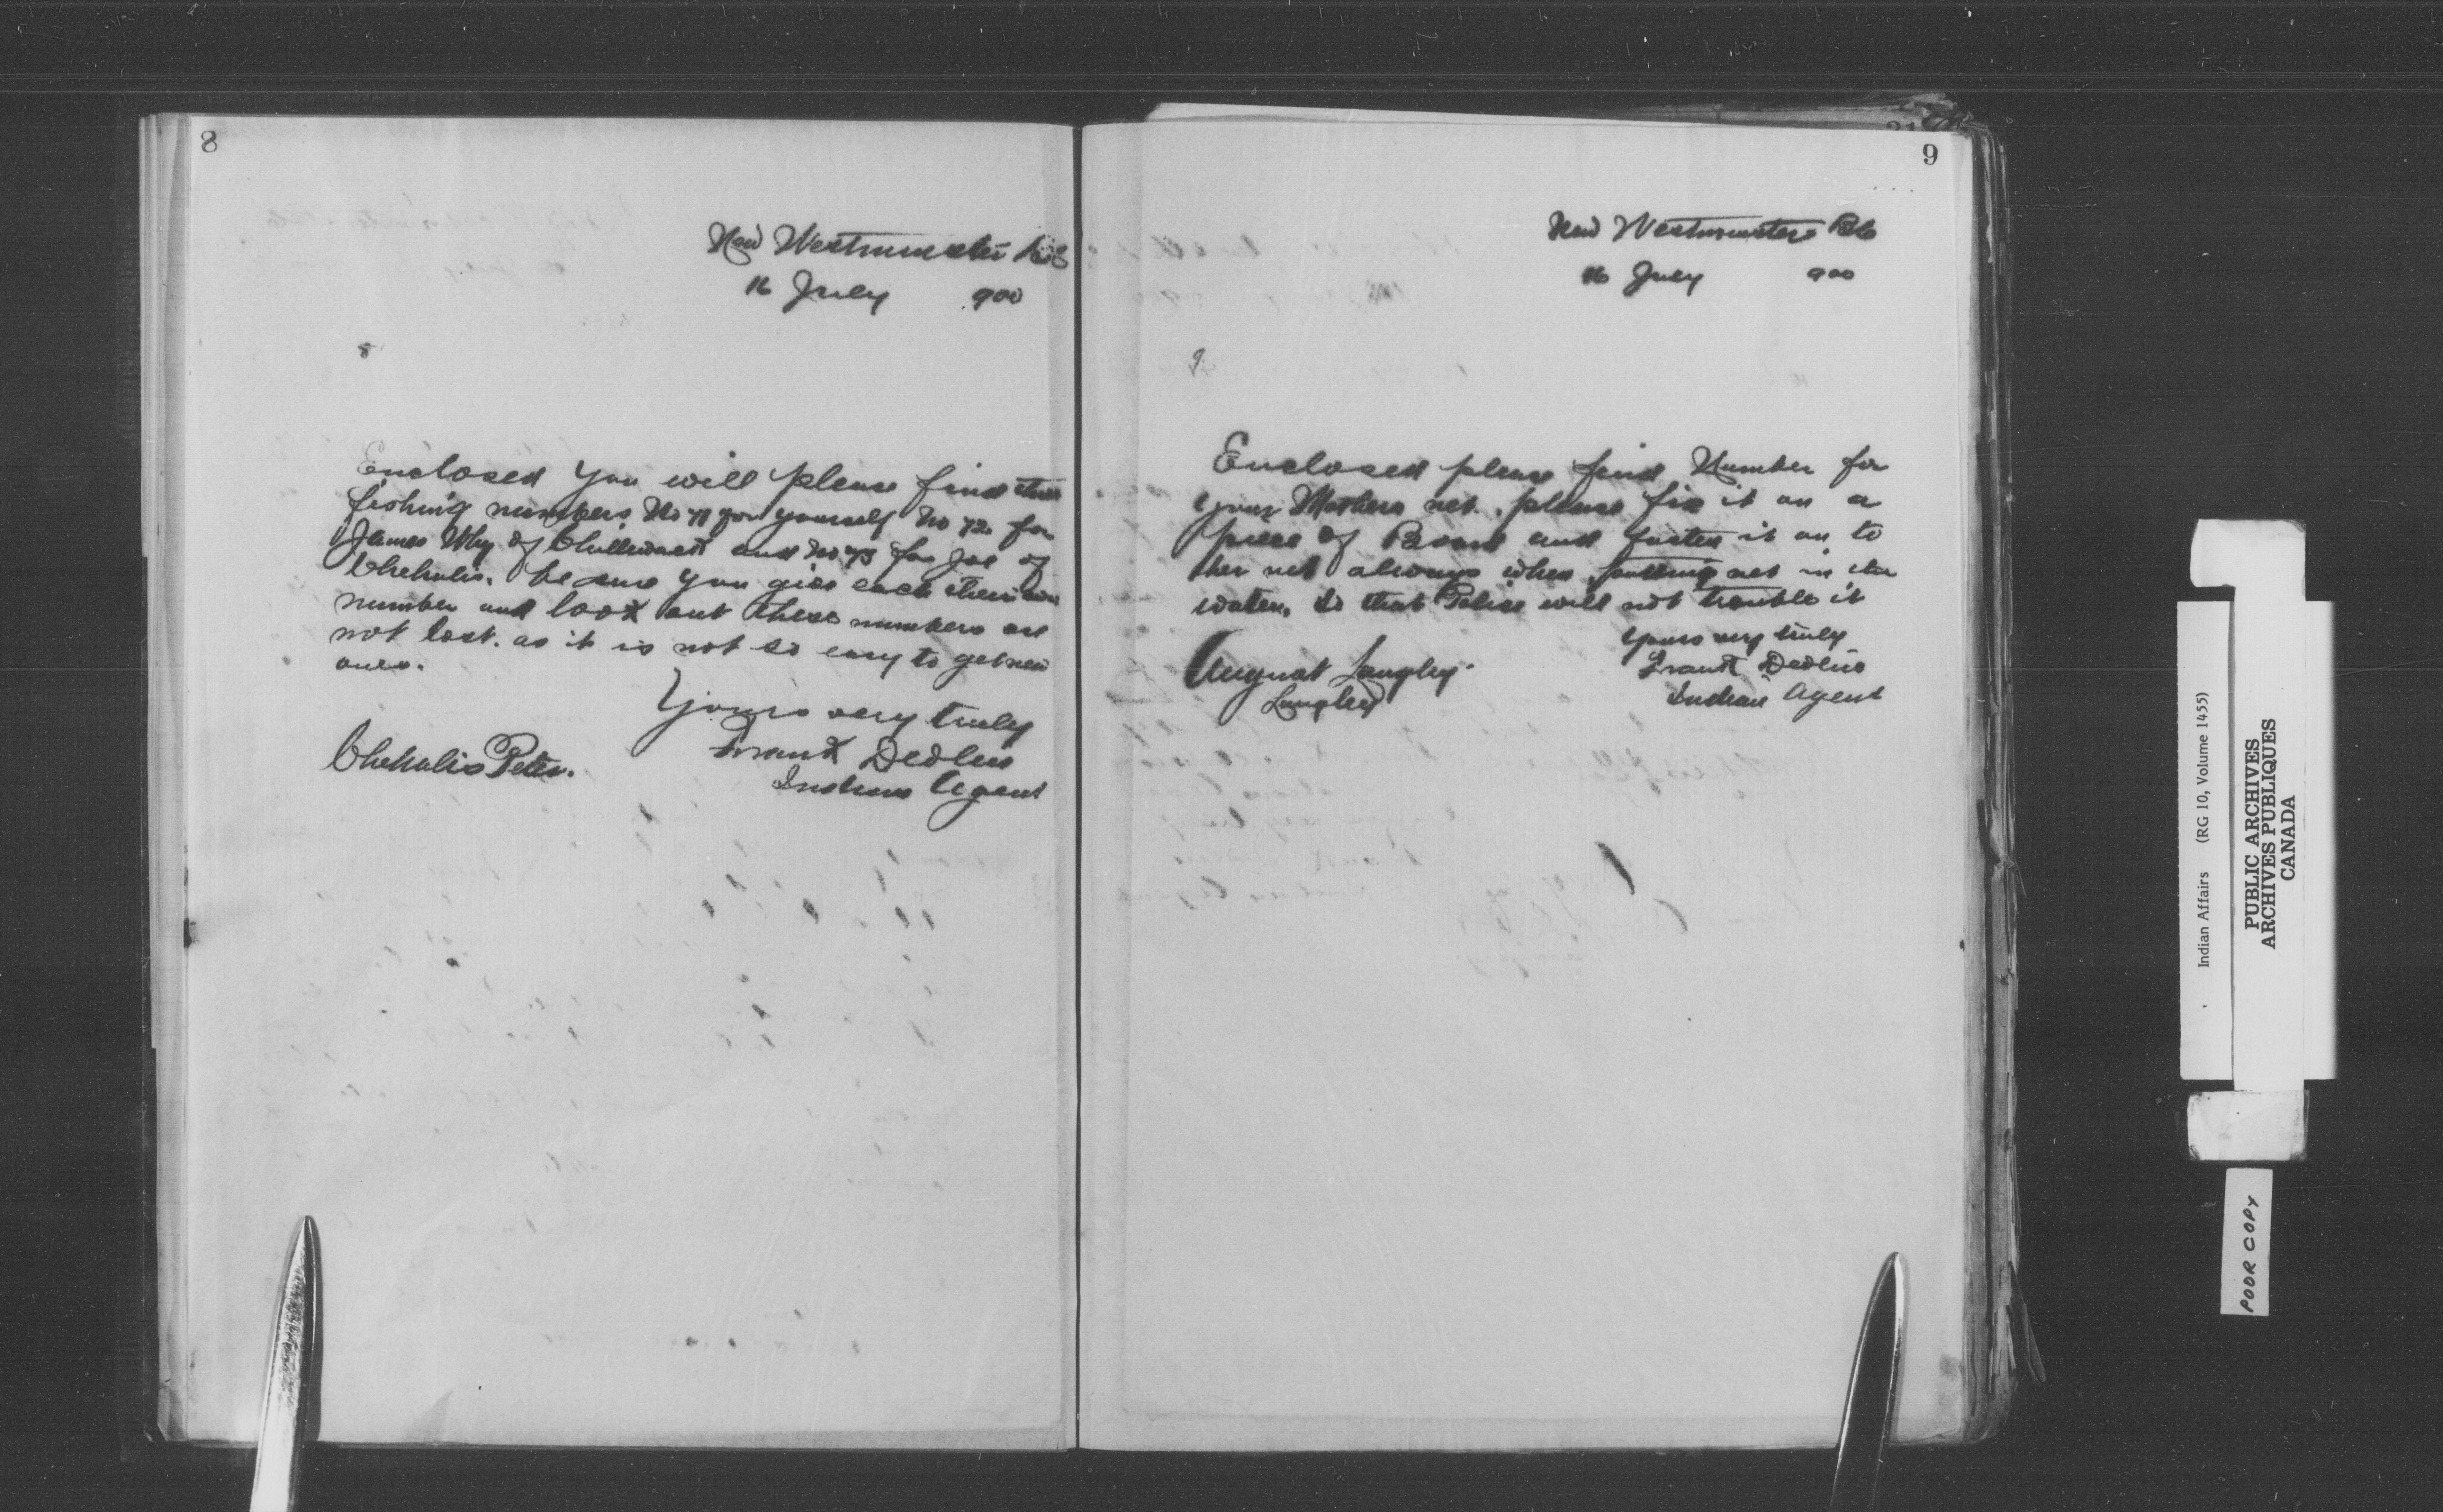 8
New Westminster BC
16 July 900
8
Enclosed you will please find three
fishing numbers No 71 for yourself No 72 for
James Why of Chilliwack and No 73 for Joe of
Chehalis. be sure you give each their own
number and look out these numbers are
not lost. as it is not so easy to get new
ones.
Yours very truly
Frank Devlin
Indian Agent
Chehalis Peter.
9
New Westminster BC
16 July 900
9
Enclosed please find Number for
your Mothers net. please fix it on a
piece of Board and fasten it on to
her net always when putting net in the
water, so that Police will not trouble it
Yours very truly
Frank Devlin
Indian Agent
August Langley.
Langley
Indian Affairs (RG 10, Volume 1455)
PUBLIC ARCHIVES
ARCHIVES PUBLIQUES
CANADA
POOR COPY